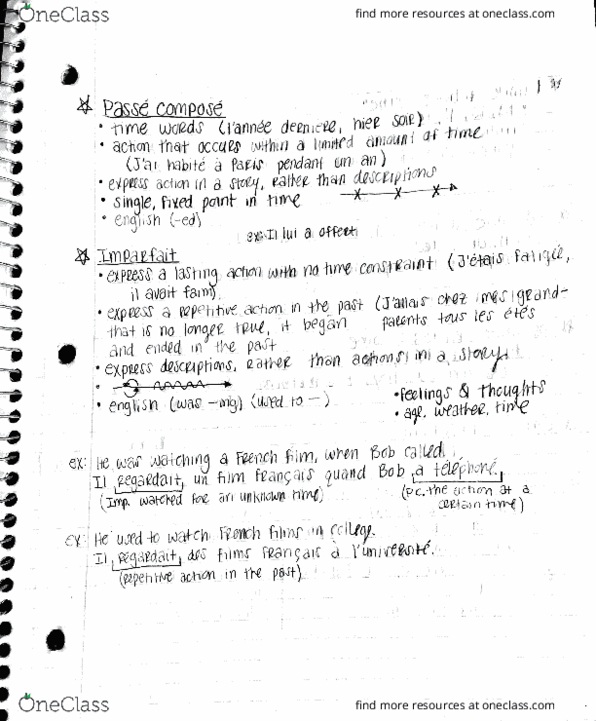 OneClass
find more resources at oneclass.com
Passé composé
• time words (l'année dernière, hier soir)
• action that occurs within a limited amount of time
(J'ai habité à Paris pendant un an)
• express action in a story, rather than descriptions
• single, fixed point in time
• english (-ed)
ex: Il lui a offert
Imparfait
• express a lasting action with no time constraint (J'étais fatigée,
il avait faim).
• express a repetitive action in the past (J'allais chez mes grand-
that is no longer true, it began parents tous les étés
and ended in the past
• express descriptions, rather than actions in a story
• english (was -ing) (used to -)
• feelings & thoughts
• age, weather, time
ex: He was watching a French film, when Bob called.
Il regardait, un film français quand Bob a téléphoné.
(Imp. watched for an unknown time)
(P.C. the action at a
certain time)
ex: He used to watch French films in college.
Il regardait des films français à l'université.
(repetitive action in the past)
OneClass
find more resources at oneclass.com